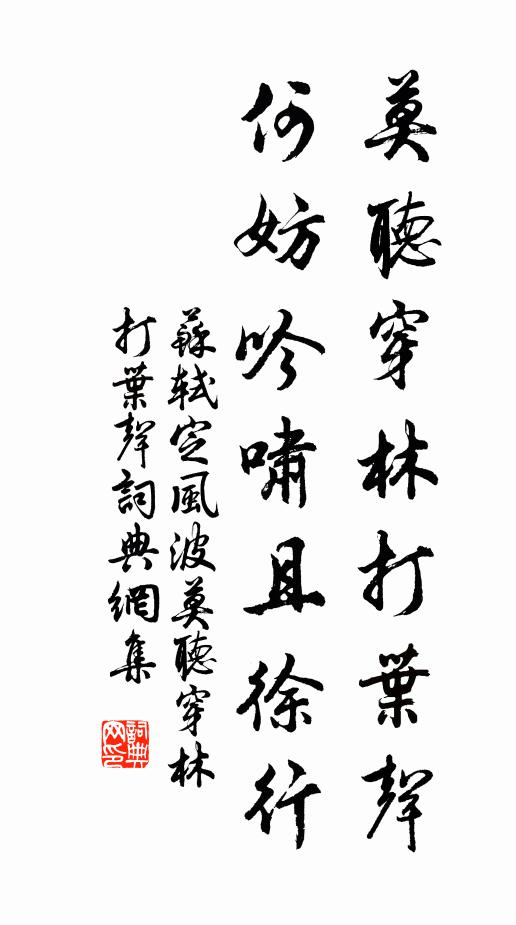 莫聽穿林打葉聲
何妨吟嘯且徐行
蘇軾定風波莫聽穿林
打葉聲詞典網集
詞典
网印